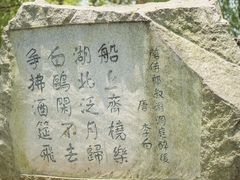 陪侍郎叔游洞庭醉後
唐 李白
船上齊橈樂
湖北泛月歸
白鷗閑不去
爭拂酒筵飛